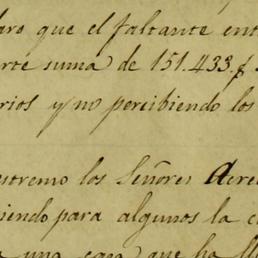 aro que el faltante ent
rte suma de 151.433.f
rios y no percibiendo los
estremo los Señores Acre
iendo para algunos la c
una casa que ha